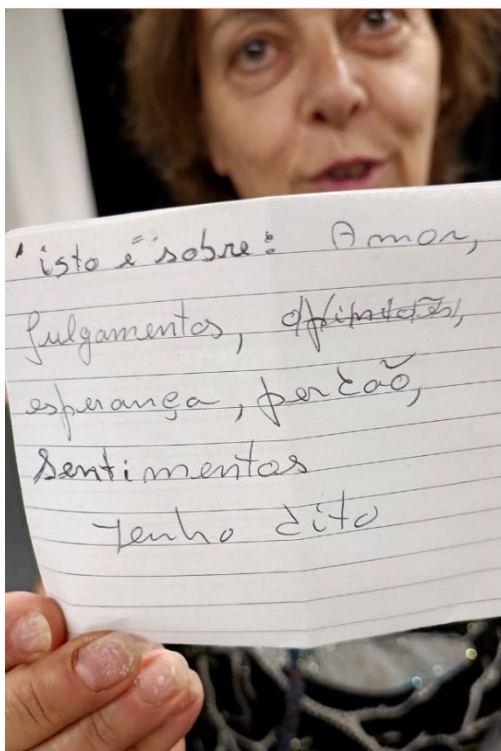 "isto é sobre: Amor,
julgamentos, opiniões,
esperança, perdão,
sentimentos
tenho dito